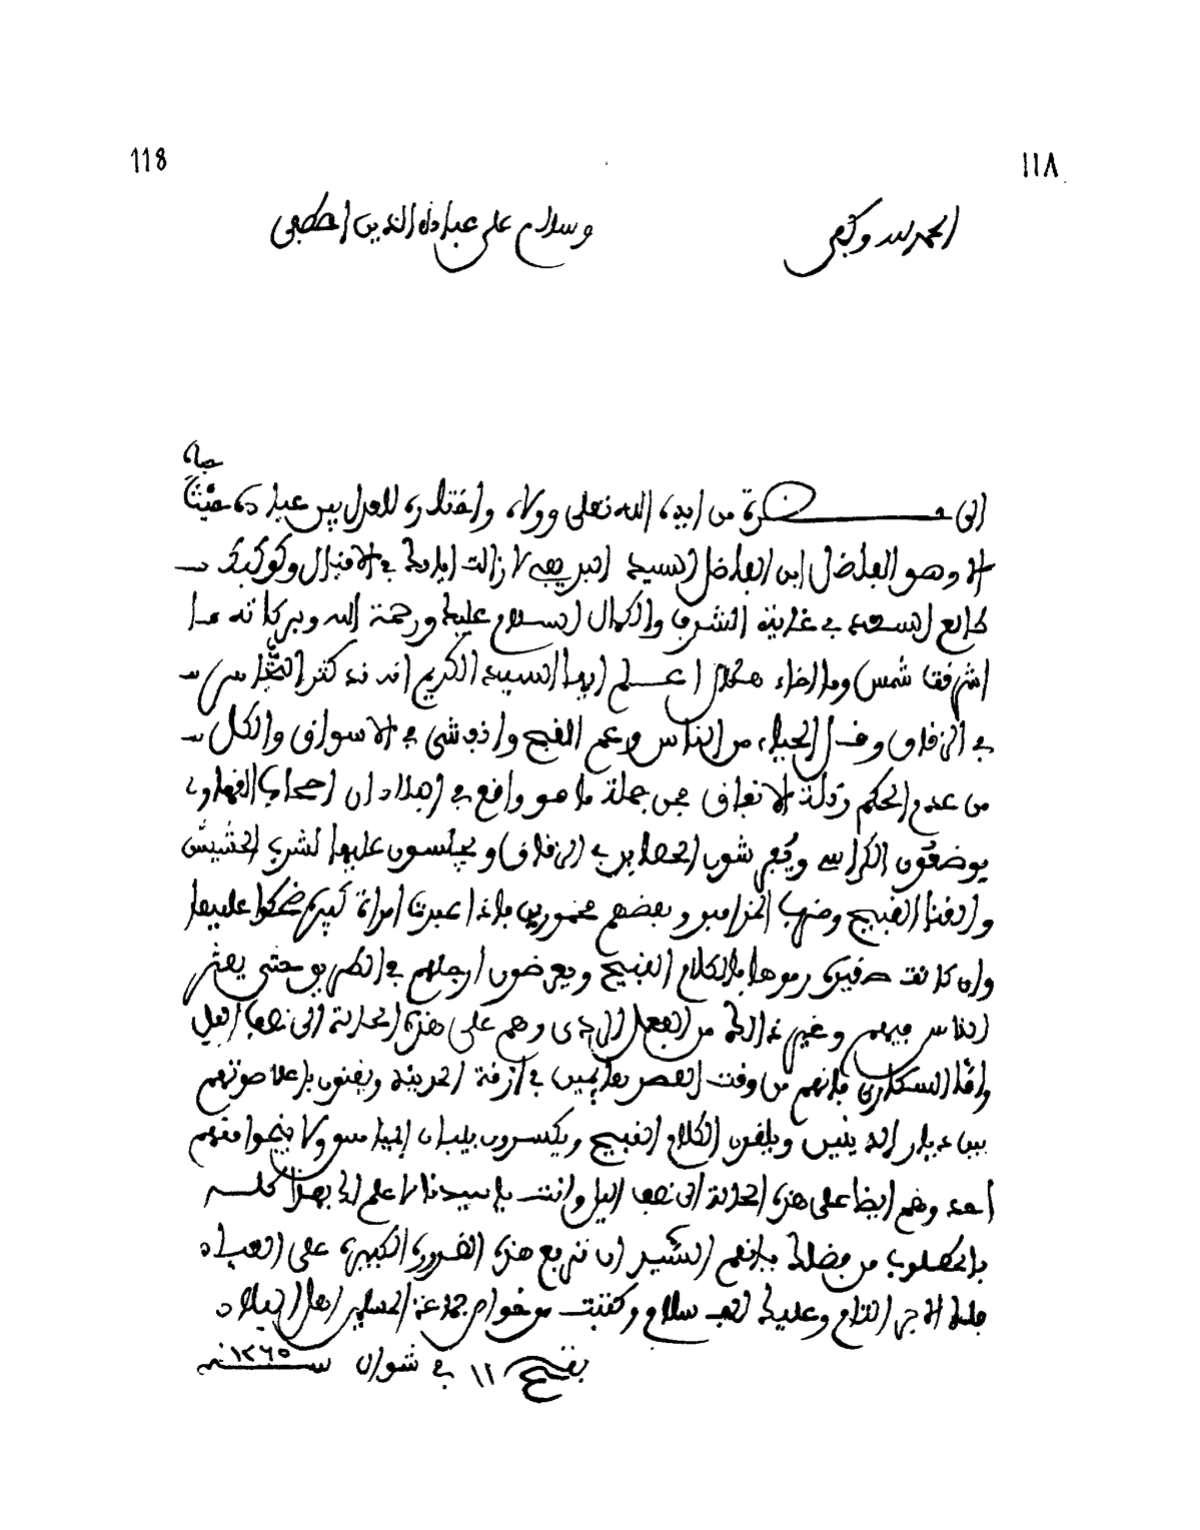 118 ١١٨
الحمد لله وكفى وسلام على عباده الذين اصطفى
جاه
الى حضرة من ايده الله تعلى وولاه واختاره للعدل بين عباده
الا وهو الفاضل ابن الفاضل السيد لا زالت في الاقبال وكوكبك
طالع السعد في غاية الشرف والكمال السلام عليك ورحمة الله وبركاته ما
اشرقت شمس وما اضاء هلال اعلم ايها السيد الكريم انه قد كثر
في الزقاق وقل الحياء من الناس وعم القبح والفواحش في الاسواق والكل
من عدم الحكم وقلة الانفاق فمن جملة ما هو واقع في ان اصحاب القهاوي
يوضعون الكراسي ويفرشون الحصاير في الزقاق ويجلسون عليها لشرب الحشيش
والغنا القبيح وضرب المزامير وبعضهم مخمورين فاذا عبرت امراة كبيرة ضحكوا عليها
وان كانت صغيرة رموها بالكلام القبيح ويعرضون ارجلهم في الطريق حتى يعثر
الناس فيهم وغير ذالك من الفعل الردي وهم على هذه الحالة الى نصف اليل
واما السكارى فانهم من وقت العصر في ازقة المدينة ويغنون باعلا صوتهم
بين ديار ويلقون الكلام القبيح ويكسرون بيبان الناس ولا
احد وهم ايضا على هذه الحالة الى نصف اليل وانت يا سيدنا لا علم لك بهذا كله
فالمطلوب من فضلك ان ترفع هذه الضرورة الكبيرة على العباد
فلك الاجر التام وعليك الف سلام وكتبت من خوام جماعة المسلمين اهل البلاد
١١ في شوال سنة ١٢٦٥